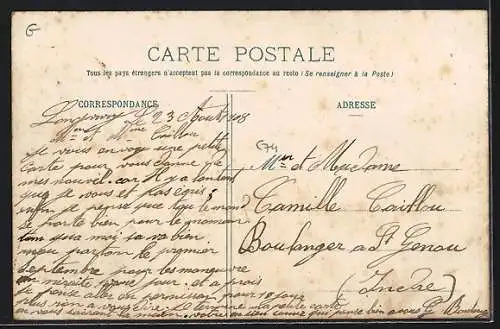 G
CARTE POSTALE
Tous les pays étrangers n'acceptent pas la correspondance au recto (Se renseigner à la Poste)
CORRESPONDANCE
ADRESSE
le 23 Août 1908
Mr et Mme Caillou
je vous envoy une petite
Carte pour vous donne de
mes nouvel. car il y a lontem
que je vous et pas écris
enfin je pense que tout le monde
se porte bien pour le moment
tan qua moi sa va bien
nous parton le premier
septembre pour les maneuvre
jour et a prais
je pense aller en permission pour 18 jour
plus rien a vous dire
en vous la main votre ami qui pense bien a vous
C74
Mr et Madame
Camille Caillou
Boulanger a St Genou
(Indre)